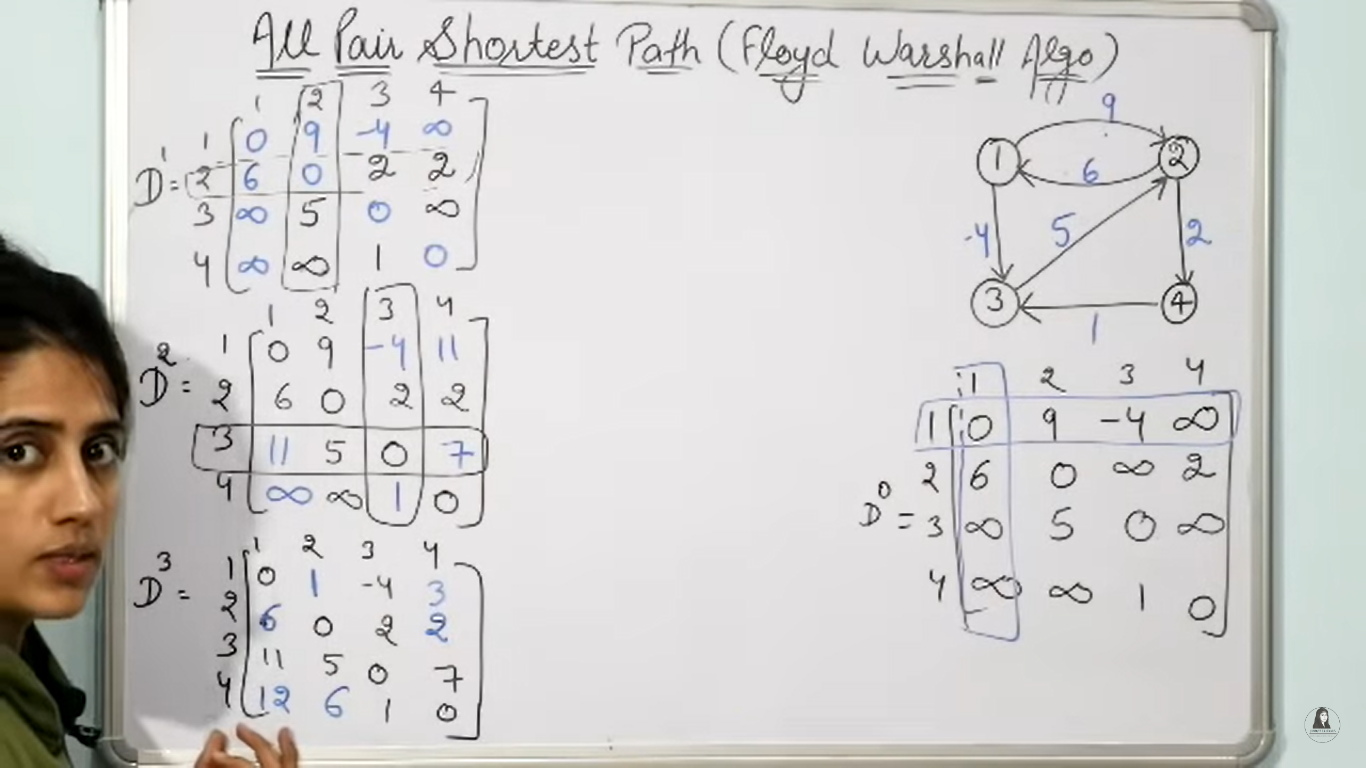 All Pair Shortest Path (Floyd Warshall Algo)
1 2 3 4
D¹ =
1 0 9 -4 ∞
2 6 0 2 2
3 ∞ 5 0 ∞
4 ∞ ∞ 1 0
1 2 3 4
D² =
1 0 9 -4 11
2 6 0 2 2
3 11 5 0 7
4 ∞ ∞ 1 0
1 2 3 4
D³ =
1 0 1 -4 3
2 6 0 2 2
3 11 5 0 7
4 12 6 1 0
9
1 2
6
-4 5 2
3 4
1
1 2 3 4
1 0 9 -4 ∞
2 6 0 ∞ 2
D⁰ =
3 ∞ 5 0 ∞
4 ∞ ∞ 1 0